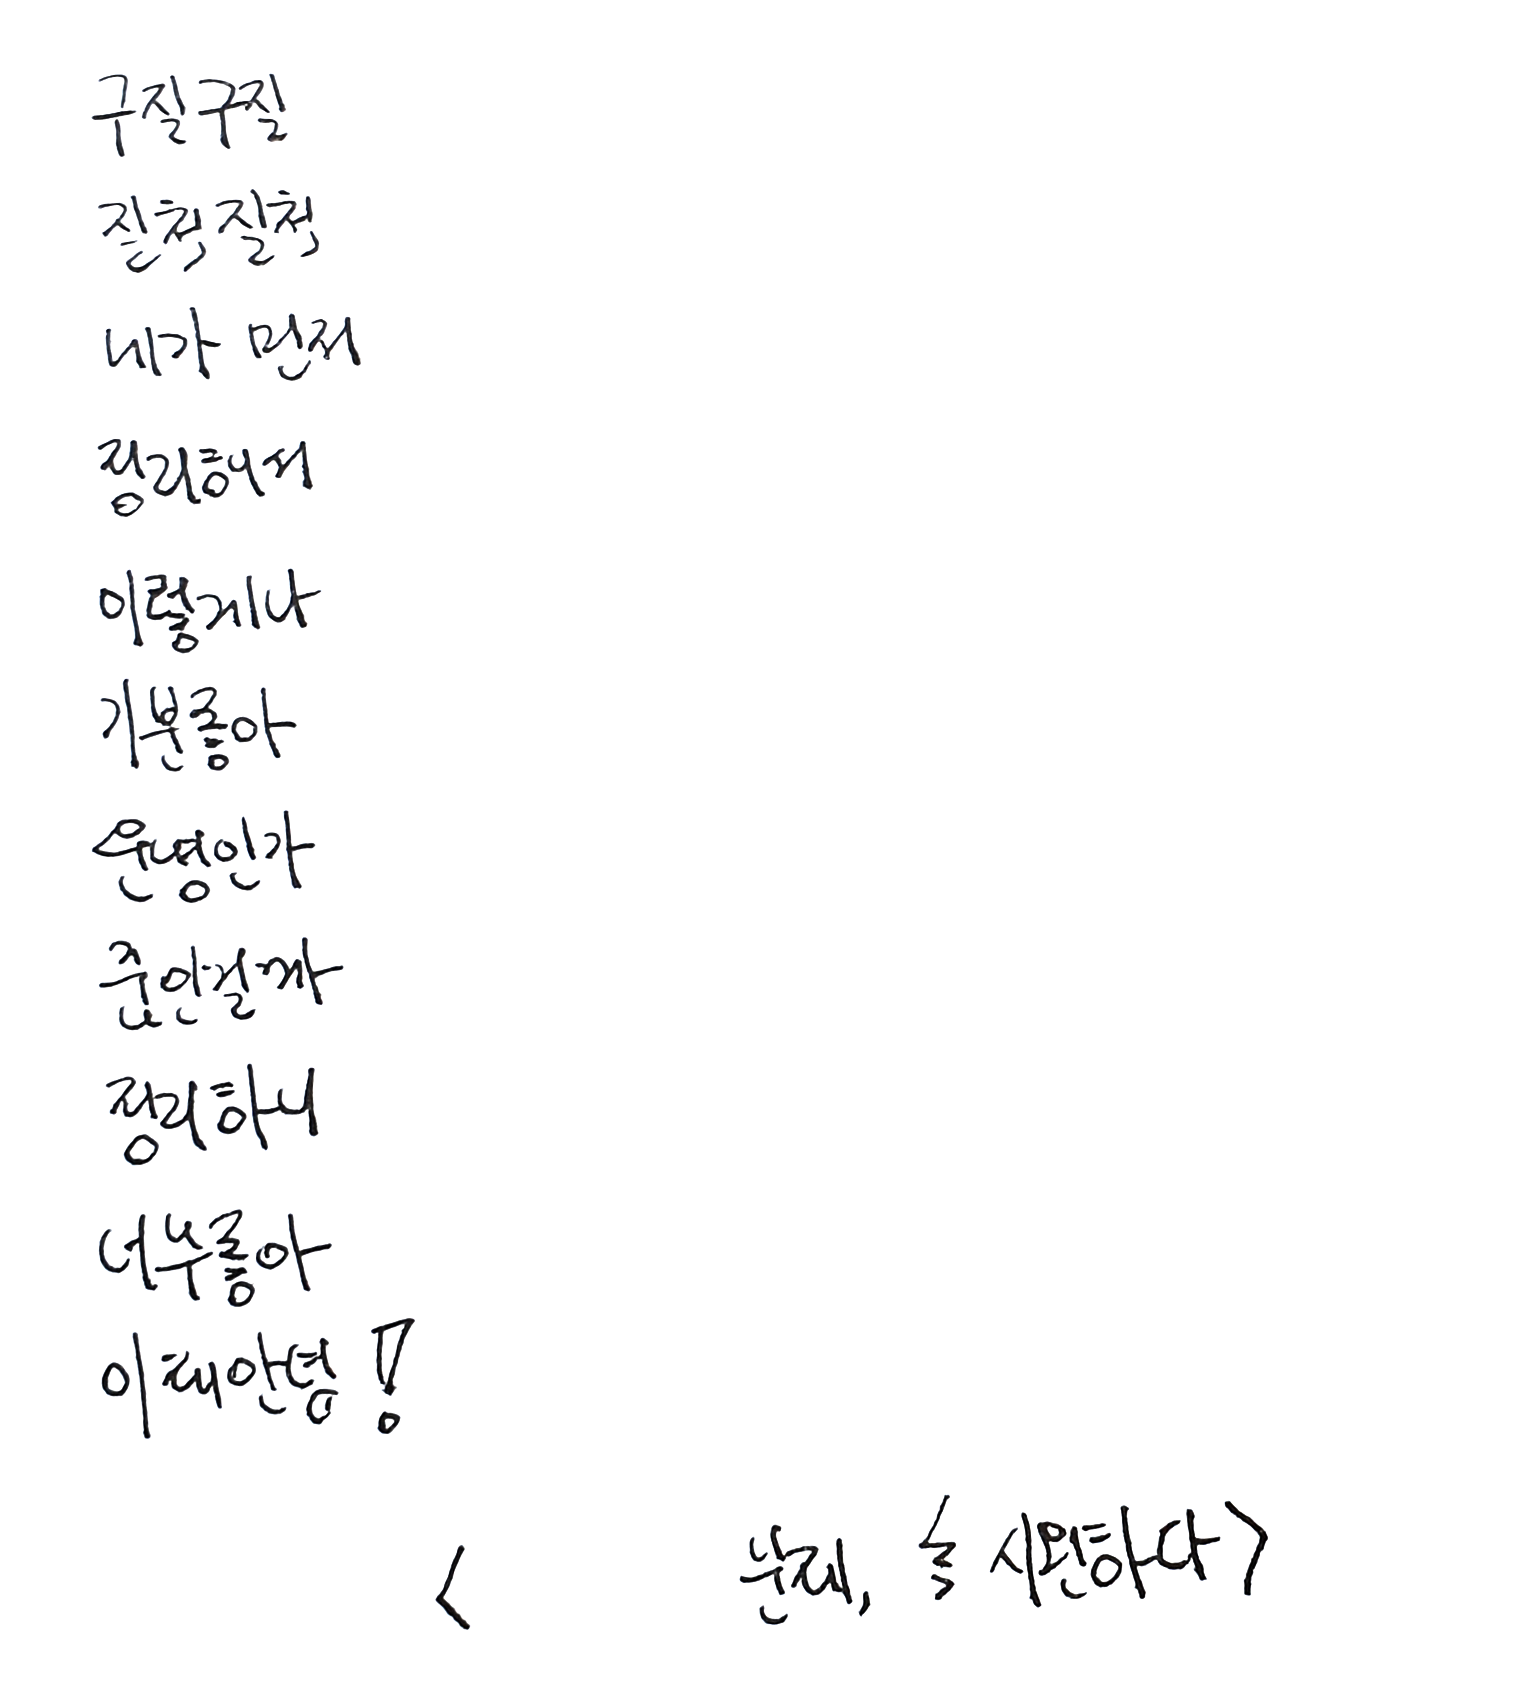 구질구질
질척질척
내가 먼저
정리해서
이렇게나
기분좋아
운명인가
정리하니
너무좋아
이제안녕!
< 문제, 속 시원하다>